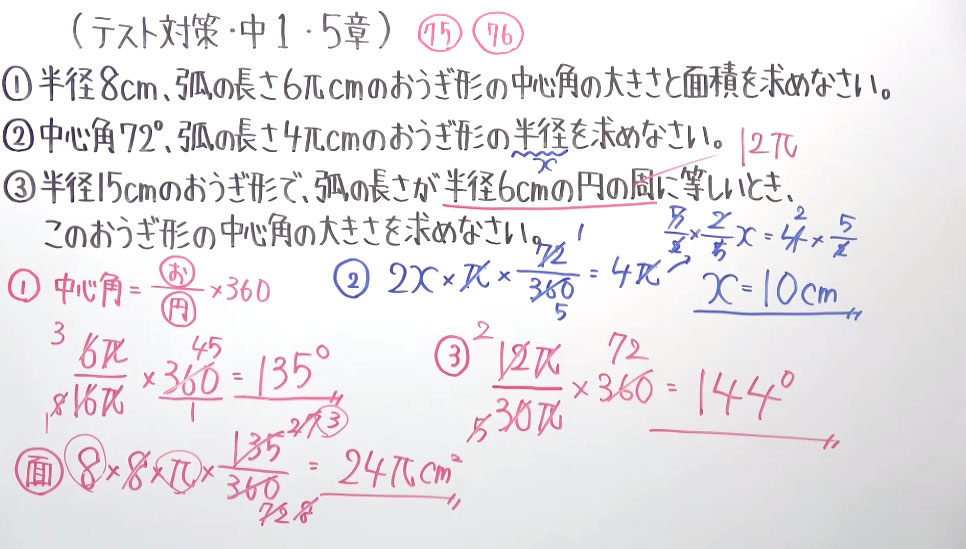 (テスト対策・中1・5章) 75 76
① 半径8cm、弧の長さ6πcmのおうぎ形の中心角の大きさと面積を求めなさい。
② 中心角72°、弧の長さ4πcmのおうぎ形の半径を求めなさい。
x
12π
③ 半径15cmのおうぎ形で、弧の長さが半径6cmの円の周に等しいとき、
このおうぎ形の中心角の大きさを求めなさい。
① 中心角 = お/円 × 360
3 6π/16π 8 1 × 360 45 1 = 135°
面 8 × 8 × π × 135/360 27 3 72 8 = 24πcm²
② 2x × π × 72/360 1 5 = 4π
5/2 × 2/5 x = 4 2 × 5/2
x = 10cm
③ 2 12π/30π 5 × 360 72 = 144°